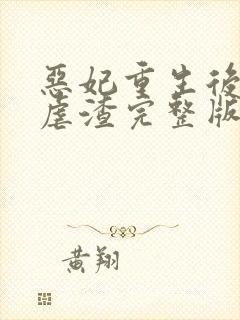 惡妃重生後
虐渣完整版
黄翔